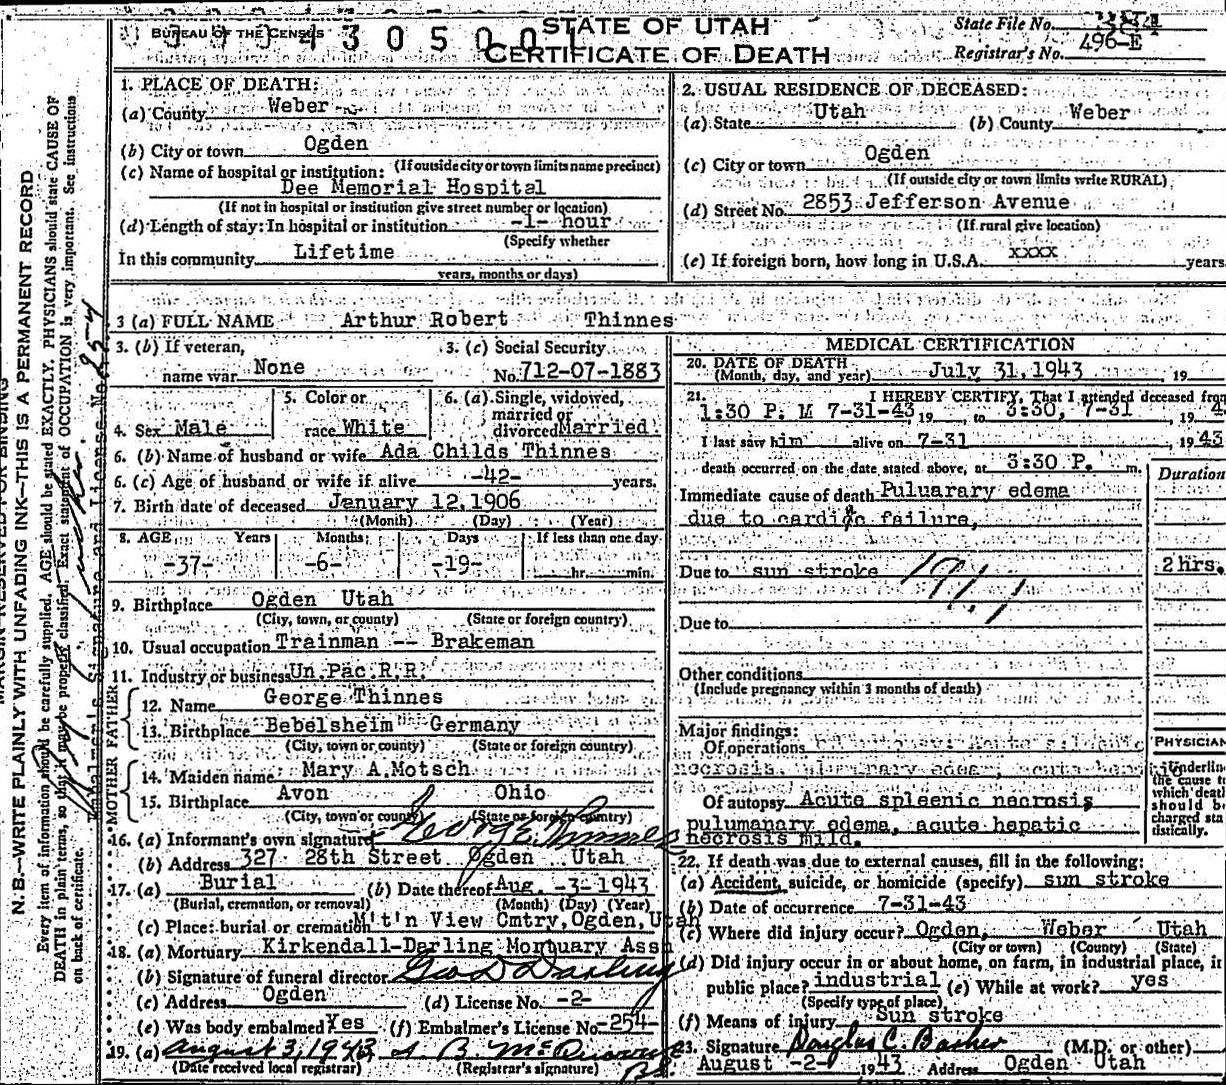 BUREAU OF THE CENSUS
430500
STATE OF UTAH
CERTIFICATE OF DEATH
State File No.
Registrar's No. 496-E
1. PLACE OF DEATH:
(a) County Weber
(b) City or town Ogden
(If outside city or town limits name precinct)
(c) Name of hospital or institution:
Dee Memorial Hospital
(If not in hospital or institution give street number or location)
(d) Length of stay: In hospital or institution -1- hour
(Specify whether
In this community Lifetime
years, months or days)
2. USUAL RESIDENCE OF DECEASED:
(a) State Utah (b) County Weber
(c) City or town Ogden
(If outside city or town limits write RURAL)
(d) Street No. 2853 Jefferson Avenue
(If rural give location)
(e) If foreign born, how long in U.S.A. xxxx years
3 (a) FULL NAME Arthur Robert Thinnes
3. (b) If veteran,
name war None
3. (c) Social Security
No. 712-07-1883
4. Sex Male
5. Color or
race White
6. (a) Single, widowed,
married or
divorced Married
6. (b) Name of husband or wife Ada Childs Thinnes
6. (c) Age of husband or wife if alive -42- years.
7. Birth date of deceased January 12, 1906
(Month) (Day) (Year)
8. AGE Years Months Days If less than one day
-37- -6- -19- hr. min.
9. Birthplace Ogden Utah
(City, town, or county) (State or foreign country)
10. Usual occupation Trainman -- Brakeman
11. Industry or business Un.Pac.R.R.
FATHER
12. Name George Thinnes
13. Birthplace Bebelsheim Germany
(City, town or county) (State or foreign country)
MOTHER
14. Maiden name Mary A.Motsch
15. Birthplace Avon Ohio
(City, town or county) (State or foreign country)
16. (a) Informant's own signature George Thinnes
(b) Address 327 28th Street Ogden Utah
17. (a) Burial (b) Date thereof Aug. -3-1943
(Burial, cremation, or removal) (Month) (Day) (Year)
(c) Place: burial or cremation M't'n View Cmtry, Ogden, Utah
18. (a) Mortuary Kirkendall-Darling Mortuary Assn
(b) Signature of funeral director Geo D Darling
(c) Address Ogden (d) License No. -2-
(e) Was body embalmed Yes (f) Embalmer's License No. -254-
19. (a) August 3, 1943
(Date received local registrar) (Registrar's signature)
MEDICAL CERTIFICATION
20. DATE OF DEATH
(Month, day, and year) July 31, 1943, 19
21. I HEREBY CERTIFY, That I attended deceased from
1:30 P. M 7-31-43, 19 , to 3:30, 7-31 , 4
I last saw him alive on 7-31 , 1943
death occurred on the date stated above, at 3:30 P. m.
Duration
Immediate cause of death Puluarary edema
due to cardiac failure,
Due to sun stroke 2 hrs.
Due to
Other conditions
(Include pregnancy within 3 months of death)
Major findings:
Of operations
Of autopsy Acute spleenic necrosis
pulumanary edema, acute hepatic
necrosis mild.
PHYSICIAN
Underline
the cause to
which death
should be
charged sta
tistically.
22. If death was due to external causes, fill in the following:
(a) Accident, suicide, or homicide (specify) sun stroke
(b) Date of occurrence 7-31-43
(c) Where did injury occur? Ogden, Weber Utah
(City or town) (County) (State)
(d) Did injury occur in or about home, on farm, in industrial place, in
public place? industrial (e) While at work? yes
(Specify type of place)
(f) Means of injury Sun stroke
23. Signature Douglas C. Barker (M.D. or other)
August -2- 1943 Address Ogden Utah
MARGIN RESERVED FOR BINDING
N. B.—WRITE PLAINLY WITH UNFADING INK—THIS IS A PERMANENT RECORD
Every item of information should be carefully supplied. AGE should be stated EXACTLY. PHYSICIANS should state CAUSE OF
DEATH in plain terms, so that it may be properly classified. Exact statement of OCCUPATION is very important. See instructions
on back of certificate.
Embalmer's Signature and License No. 254